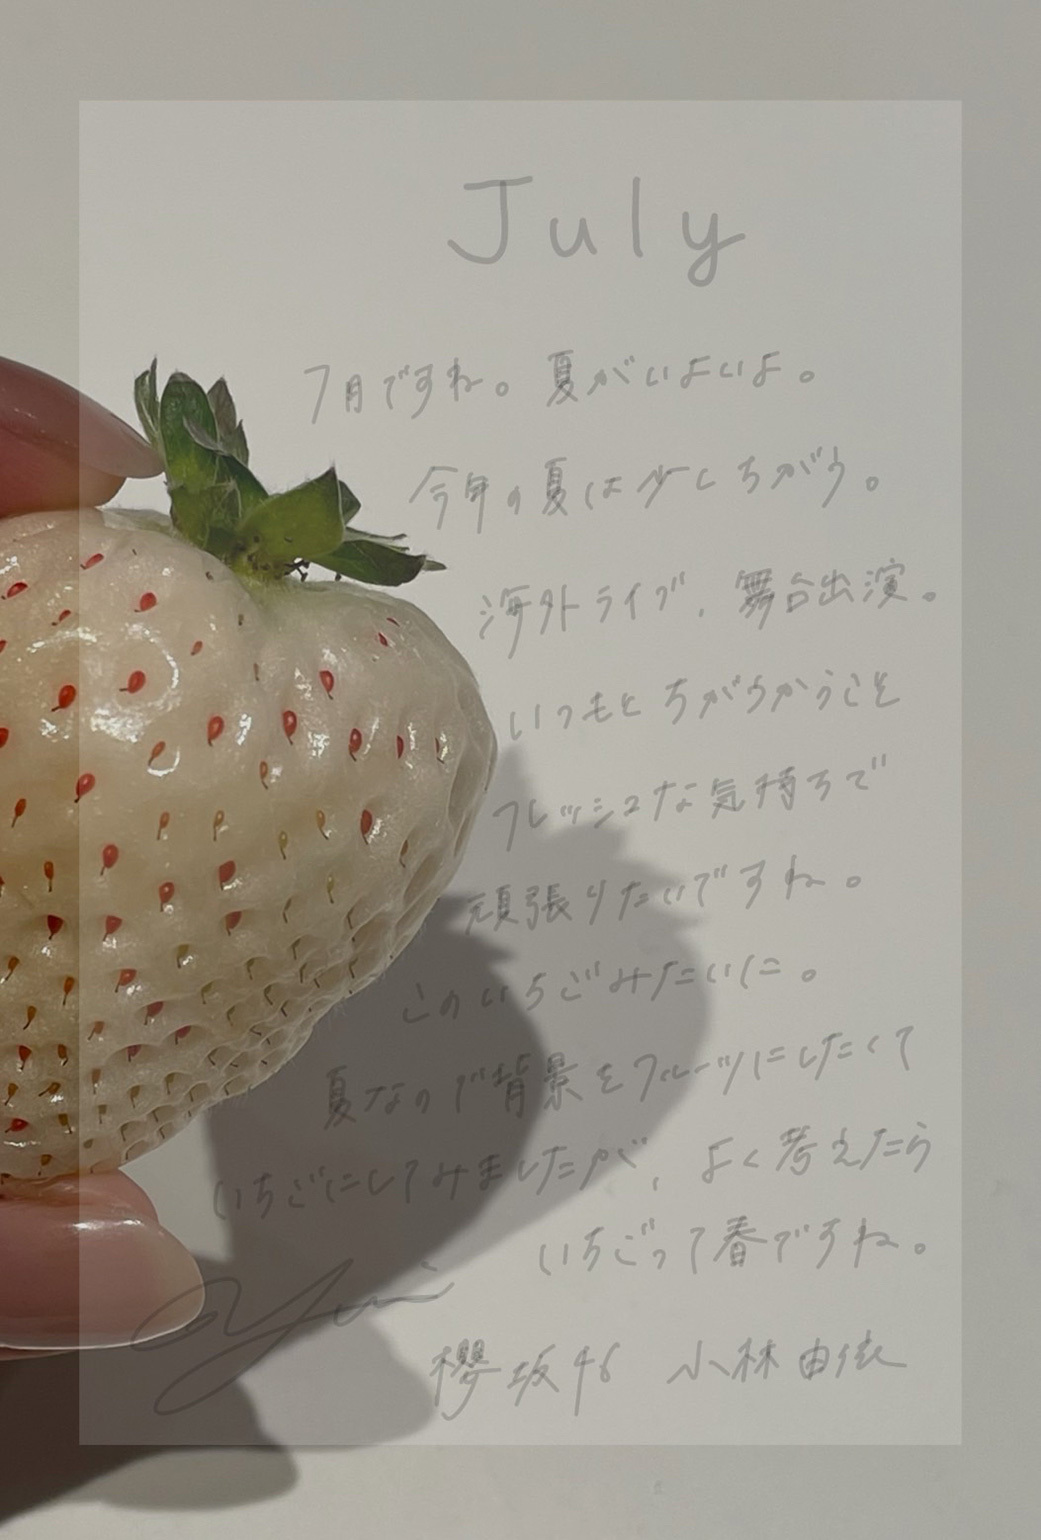 July
7月ですね。夏がいよいよ。
今年の夏は少しちがう。
海外ライブ、舞台出演。
いつもとちがうからこそ
フレッシュな気持ちで
頑張りたいですね。
このいちごみたいに。
夏なので背景をフルーツにしたくて
いちごにしてみましたが、よく考えたら
いちごって春ですね。
Yui
櫻坂46 小林由依